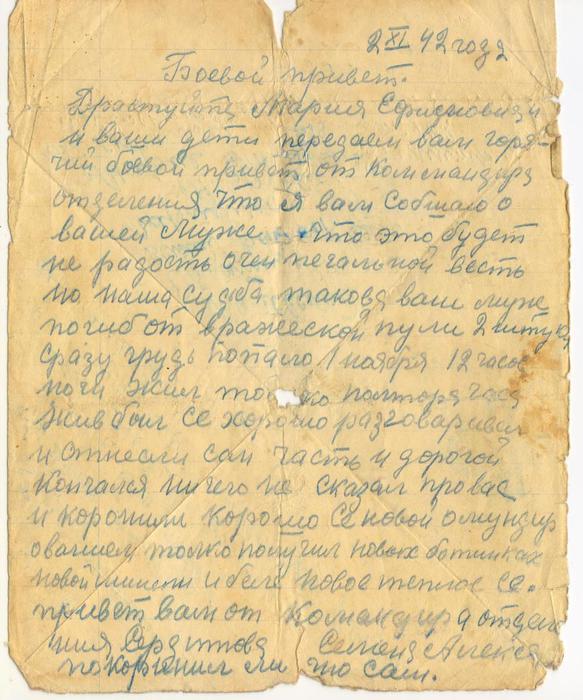 2 XI 42 года
Боевой привет.
Драстуйте Мария Ефисмовна и
и ваши дети передаем вам горя-
чий боевой привет от Коммандира
отделения что я вам собшаю о
вашей муже что это будет
не радость очен печальной весть
но наша судьба такова ваш муже
погиб от вражеской пули 2 штук
сразу грудь попало 1 ноября 12 часов
ночи жил только полторя часа
жив был се хорошо разговаривил
и отнесли сан часть и дорогой
кончался ничего не сказал про вас
и хоронили хорошо се новой омундир
ованием только получил новых ботинках
новой шинели и беле новое теплое се.
привет вам от Командира отделе
ния Семена Алекса
похоронил лично сам.